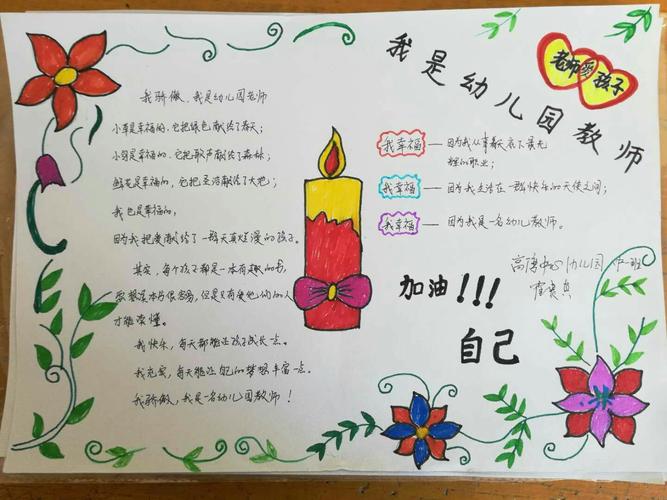 我骄傲、我是幼儿园老师
小草是幸福的,它把绿色献给了春天;
小鸟是幸福的,它把歌声献给了森林;
鲜花是幸福的,它把芬芳献给了大地;
我也是幸福的,
因为我把爱献给了一群天真烂漫的孩子。
其实,每个孩子都是一本有趣的书,
要想读本书很容易,但是只有爱他们的人
才能读懂。
我快乐,每天都能让孩子成长一点。
我充实,每天能让自己的梦想丰富一点。
我骄傲,我是一名幼儿园教师!
我是幼儿园教师
老师爱孩子
我幸福——因为我从事着天底下最光
辉的职业;
我幸福——因为我生活在一群快乐的天使之间;
我幸福——因为我是一名幼儿教师。
高唐中心幼儿园 中一班
加油!!!
自己